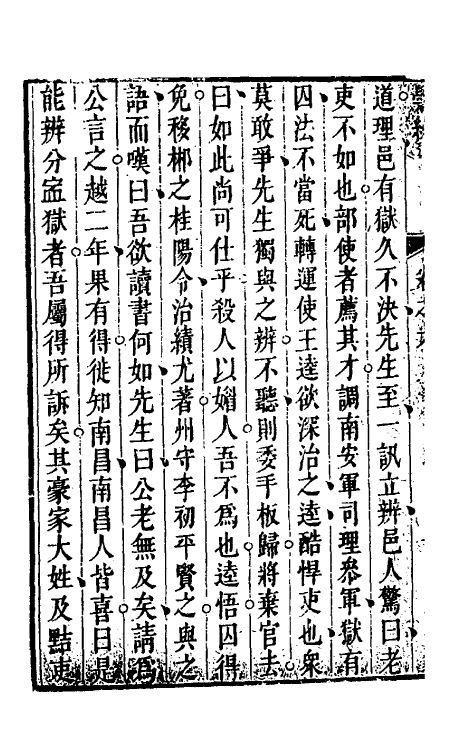 道理邑有獄久不決先生至一訊立辨邑人驚曰老
吏不如也部使者薦其才調南安軍司理叅軍獄有
囚法不當死轉運使王逵欲深治之逵酷悍吏也衆
莫敢爭先生獨與之辨不聽則委手板歸將棄官去
曰如此尚可仕乎殺人以媚人吾不爲也逵悟囚得
免移郴之桂陽令治績尤著州守李初平賢之與之
語而嘆曰吾欲讀書何如先生曰公老無及矣請爲
公言之越二年果有得徙知南昌南昌人皆喜曰是
能辨分寍獄者吾屬得所訴矣其豪家大姓及黠吏